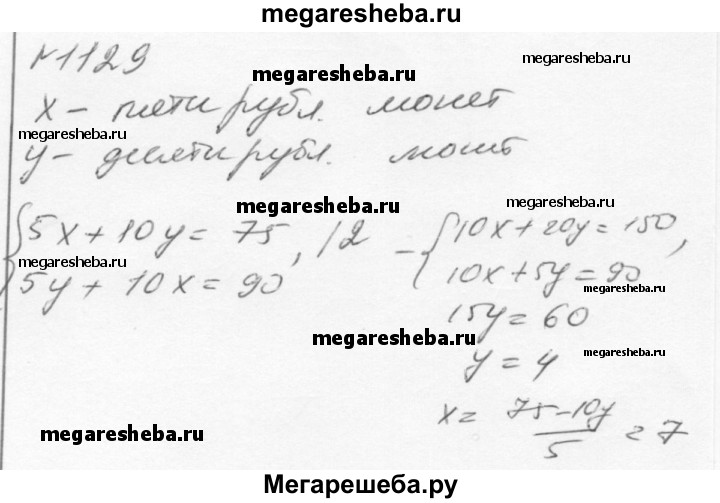 megaresheba.ru
№1129
megaresheba.ru
x – пяти рубл. монет
megaresheba.ru
y – десяти рубл. монет
megaresheba.ru
megaresheba.ru
{5x + 10y = 75, /2 – {10x + 20y = 150,
megaresheba.ru
5y + 10x = 90 10x + 5y = 90
megaresheba.ru
15y = 60
megaresheba.ru
y = 4
megaresheba.ru
x = (75 – 10y)/5 = 7
megaresheba.ru
Мегарешеба.ру